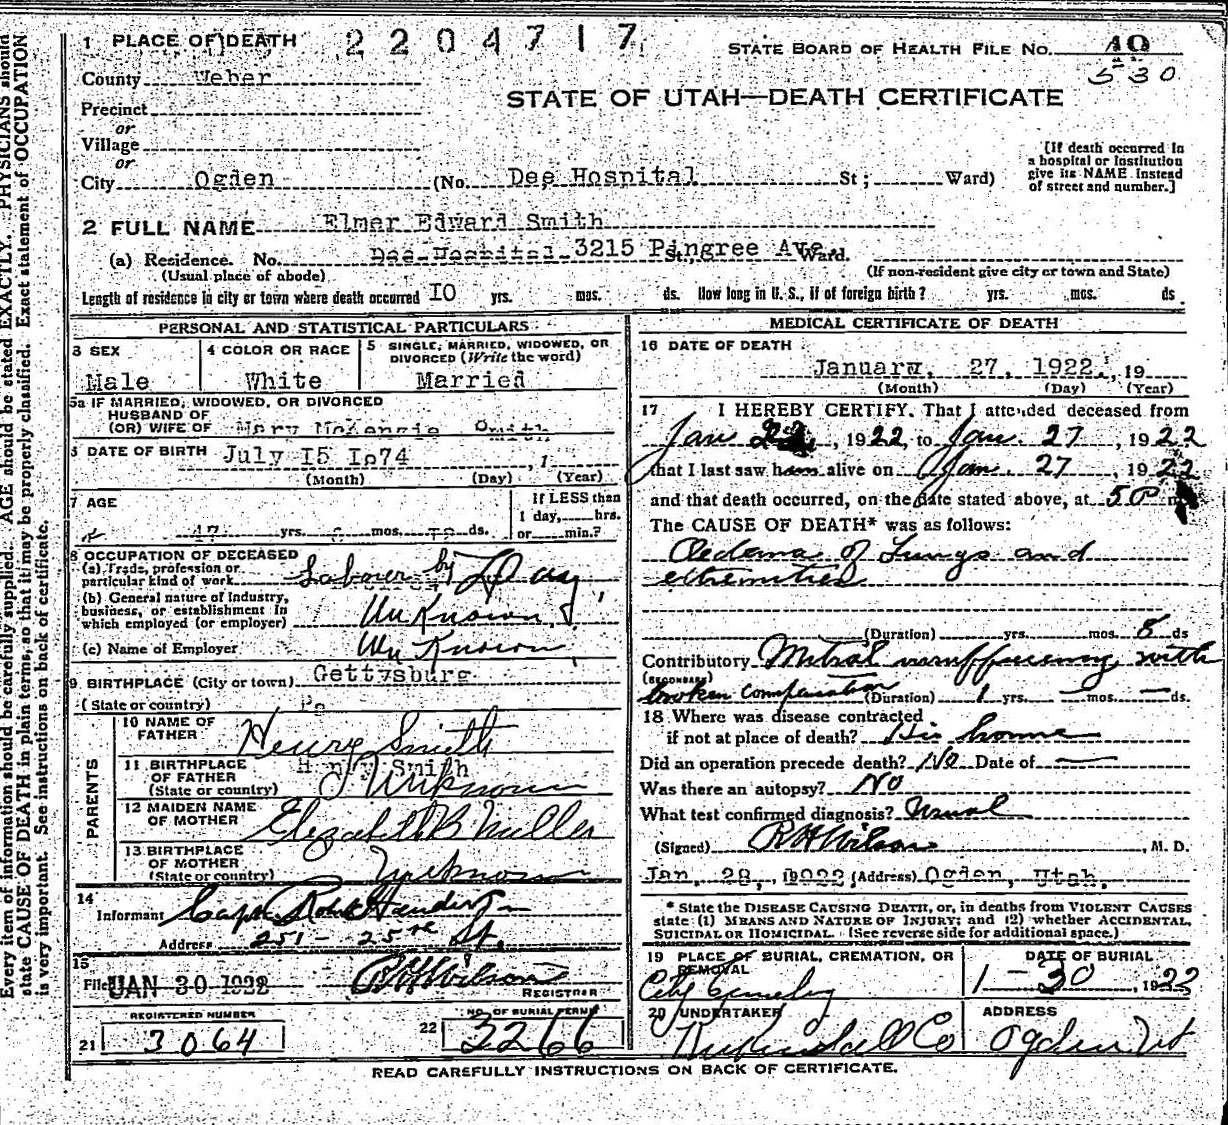 1 PLACE OF DEATH 2204717 STATE BOARD OF HEALTH FILE NO. 40
530
County Weber
STATE OF UTAH—DEATH CERTIFICATE
Precinct
or
Village
or
City Ogden (No. Dee Hospital St; Ward)
[If death occurred in
a hospital or institution
give its NAME instead
of street and number.]
2 FULL NAME Elmer Edward Smith
(a) Residence. No. Dee Hospital 3215 Pingree Ave. St., Ward.
(Usual place of abode) (If non-resident give city or town and State)
Length of residence in city or town where death occurred I0 yrs. mos. ds. How long in U. S., if of foreign birth? yrs. mos. ds
PERSONAL AND STATISTICAL PARTICULARS
3 SEX
Male
4 COLOR OR RACE
White
5 SINGLE, MARRIED, WIDOWED, OR
DIVORCED (Write the word)
Married
5a IF MARRIED, WIDOWED, OR DIVORCED
HUSBAND OF
(OR) WIFE OF Mary McKenzie Smith
6 DATE OF BIRTH July I5 I874 , 1
(Month) (Day) (Year)
7 AGE
47 yrs. 6 mos. I2 ds.
If LESS than
1 day, hrs.
or min.?
8 OCCUPATION OF DECEASED
(a) Trade, profession or
particular kind of work Laborer by Day
(b) General nature of industry,
business, or establishment in
which employed (or employer) Unknown
(c) Name of Employer Unknown
9 BIRTHPLACE (City or town) Gettysburg
(State or country) Pa
PARENTS
10 NAME OF
FATHER Henry Smith
11 BIRTHPLACE
OF FATHER Henry Smith
(State or country) Unknown
12 MAIDEN NAME
OF MOTHER Elizabeth B Miller
13 BIRTHPLACE
OF MOTHER
(State or country) Unknown
14
Informant Capt. Robt
Address 251 - 25th St.
15
Filed JAN 30 1922 R H Wilson
REGISTRAR
REGISTERED NUMBER
21 3064
NO. OF BURIAL PERMIT
22 3266
MEDICAL CERTIFICATE OF DEATH
16 DATE OF DEATH
January, 27, 1922. , 19
(Month) (Day) (Year)
17 I HEREBY CERTIFY. That I attended deceased from
Jan , 1922, to Jan. 27 , 1922
that I last saw him alive on Jan. 27 1922
and that death occurred, on the date stated above, at 5 P m
The CAUSE OF DEATH* was as follows:
Oedema of Lungs and
extremities
(Duration) yrs. mos. 8 ds
Contributory Mitral insufficiency with
(SECONDARY)
broken compensation (Duration) 1 yrs. — mos. — ds.
18 Where was disease contracted
if not at place of death? His home
Did an operation precede death? No Date of —
Was there an autopsy? No
What test confirmed diagnosis? Usual
(Signed) R H Wilson , M. D.
Jan. 28, 1922 (Address) Ogden, Utah.
* State the DISEASE CAUSING DEATH, or, in deaths from VIOLENT CAUSES
state (1) MEANS AND NATURE OF INJURY; and (2) whether ACCIDENTAL,
SUICIDAL OR HOMICIDAL. (See reverse side for additional space.)
19 PLACE OF BURIAL, CREMATION, OR
REMOVAL
City Cemetery
DATE OF BURIAL
1-30 , 1922
20 UNDERTAKER
Co
ADDRESS
Ogden Ut
READ CAREFULLY INSTRUCTIONS ON BACK OF CERTIFICATE.
Every item of information should be carefully supplied. AGE should be stated EXACTLY. PHYSICIANS should
state CAUSE OF DEATH in plain terms, so that it may be properly classified. Exact statement of OCCUPATION
is very important. See instructions on back of certificate.